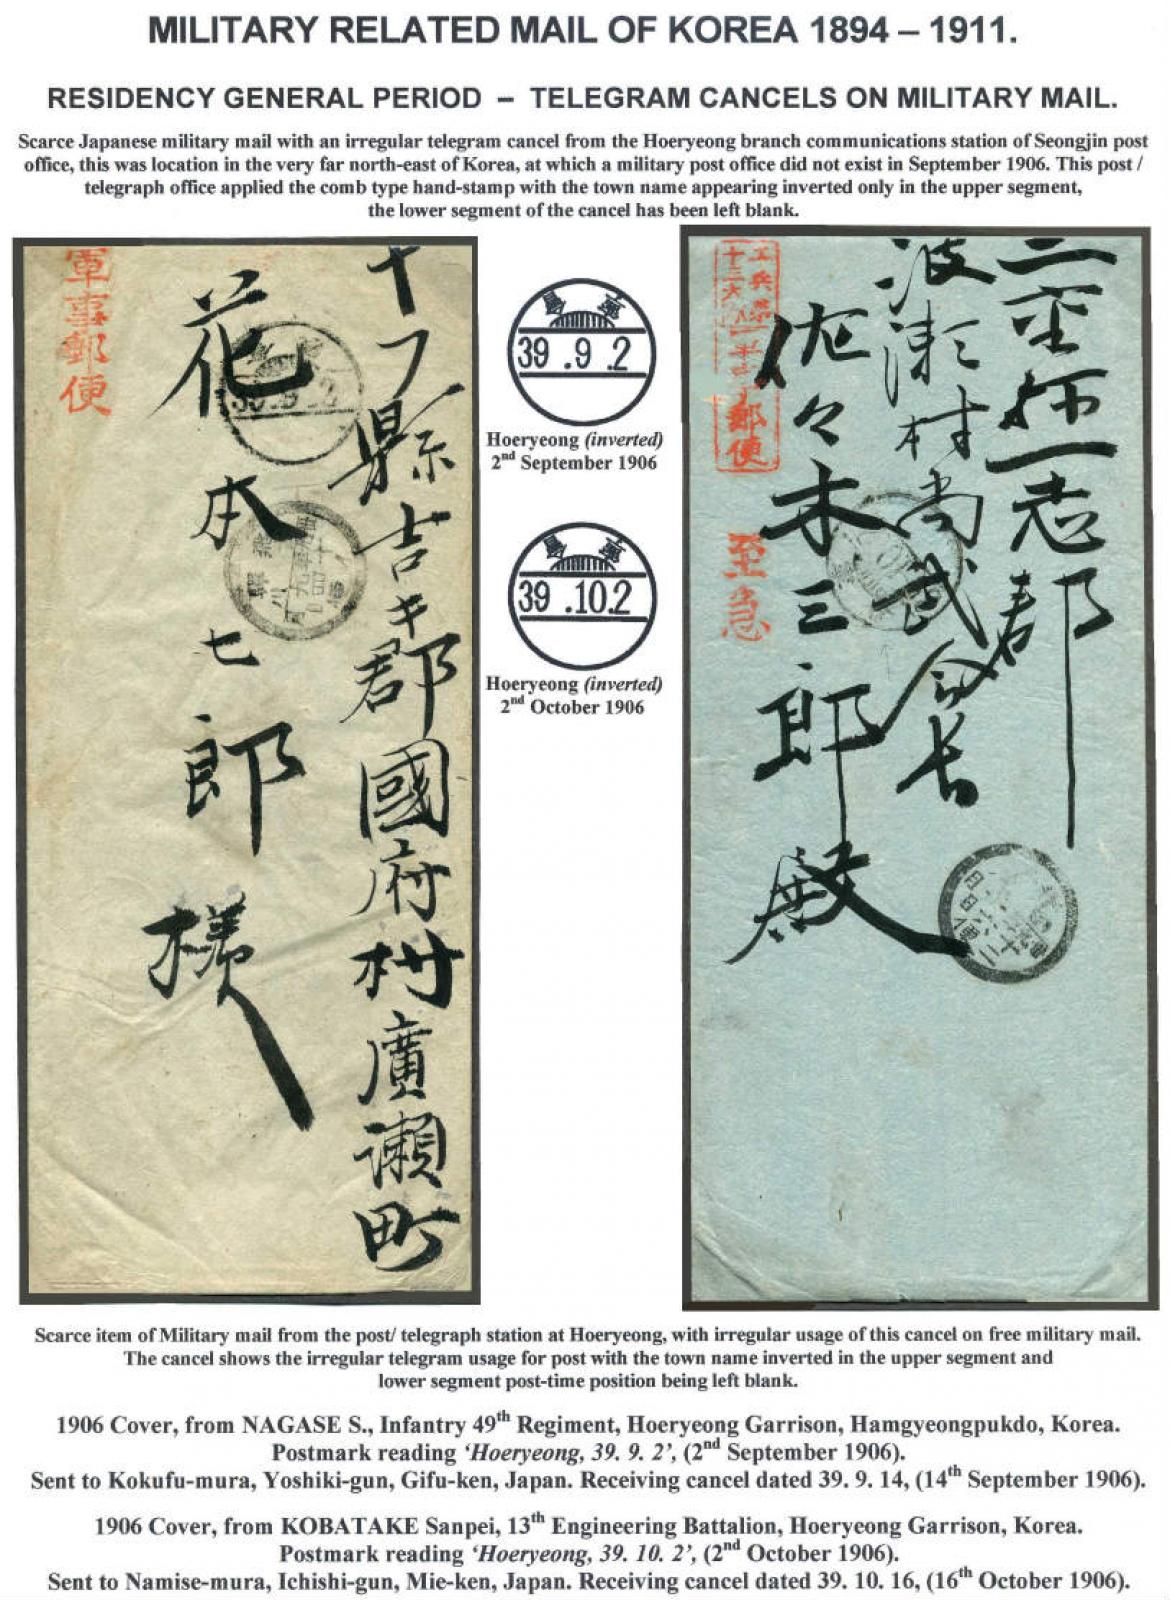 MILITARY RELATED MAIL OF KOREA 1894 – 1911.
RESIDENCY GENERAL PERIOD – TELEGRAM CANCELS ON MILITARY MAIL.
Scarce Japanese military mail with an irregular telegram cancel from the Hoeryeong branch communications station of Seongjin post
office, this was location in the very far north-east of Korea, at which a military post office did not exist in September 1906. This post /
telegraph office applied the comb type hand-stamp with the town name appearing inverted only in the upper segment,
the lower segment of the cancel has been left blank.
軍事郵便
十フ縣吉キ郡國府村廣瀬町
花本七郎様
39 .9 2
Hoeryeong (inverted)
2nd September 1906
39 .10.2
Hoeryeong (inverted)
2nd October 1906
三重縣一志郡
波瀬村尚武会長
佐々木三郎殿
郵便
至急
Scarce item of Military mail from the post/ telegraph station at Hoeryeong, with irregular usage of this cancel on free military mail.
The cancel shows the irregular telegram usage for post with the town name inverted in the upper segment and
lower segment post-time position being left blank.
1906 Cover, from NAGASE S., Infantry 49th Regiment, Hoeryeong Garrison, Hamgyeongpukdo, Korea.
Postmark reading ‘Hoeryeong, 39. 9. 2’, (2nd September 1906).
Sent to Kokufu-mura, Yoshiki-gun, Gifu-ken, Japan. Receiving cancel dated 39. 9. 14, (14th September 1906).
1906 Cover, from KOBATAKE Sanpei, 13th Engineering Battalion, Hoeryeong Garrison, Korea.
Postmark reading ‘Hoeryeong, 39. 10. 2’, (2nd October 1906).
Sent to Namise-mura, Ichishi-gun, Mie-ken, Japan. Receiving cancel dated 39. 10. 16, (16th October 1906).